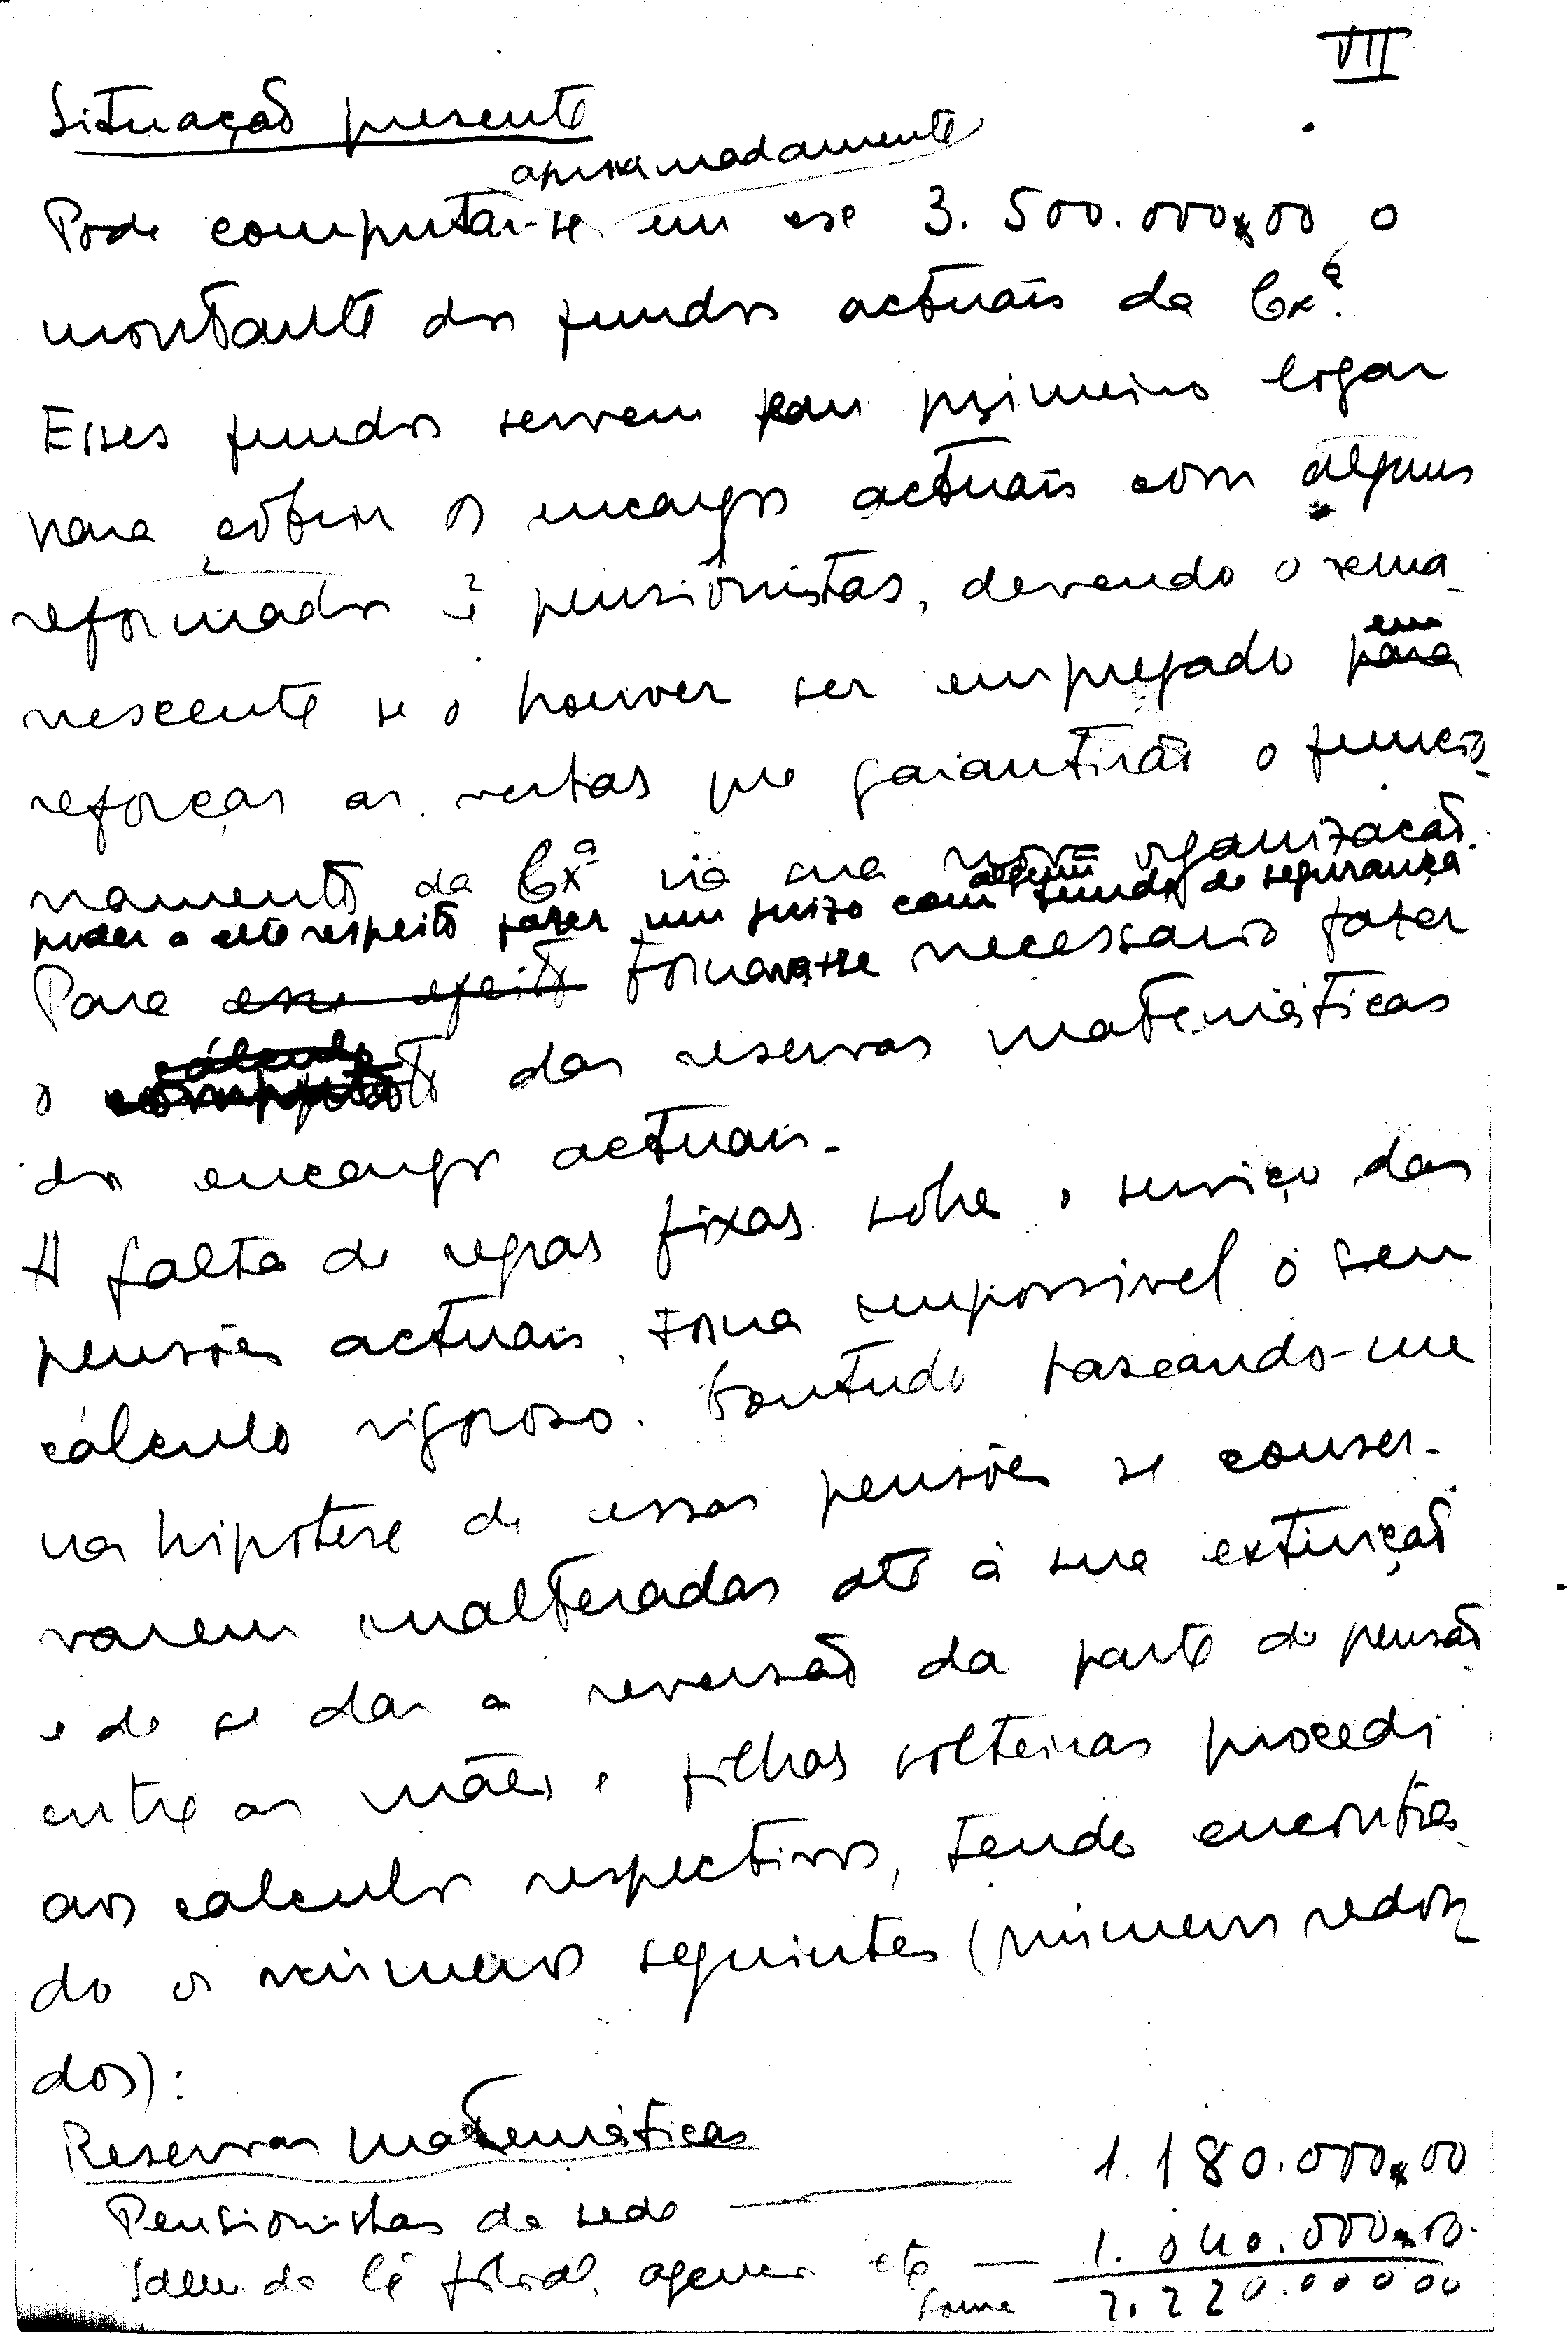 VII
Situação presente
aproximadamente
Pode computar-se em esc 3.500.000$00 o
montante dos fundos actuais da Cxª.
Esses fundos servem em primeiro logar
para cobrir os encargos actuais com alguns
reformados e pensionistas, devendo o rema-
nescente se o houver ser empregado para
em
reforçar as verbas que garantirão o funcio-
namento da Cxª na sua nova organização.
poder a este respeito fazer um juizo com fundo de segurança
Para esse efeito torna-se necessario fazer
cálculo
o computo das reservas matemáticas
dos encargos actuais.
A falta de regras fixas sobre o serviço das
pensões actuais, torna impossivel o seu
cálculo rigoroso. Contudo baseando-me
na hipotese de essas pensões se conser-
varem inalteradas até à sua extinção
e de se dar a reversão da parte de pensão
entre as mães e filhas solteiras procedi
aos calculos respectivos, tendo encontra-
do os números seguintes (números redon
dos):
Reservas matemáticas
Pensionistas da sede — 1.180.000$00
Idem da filial, agencias etc — 1.040.000$00
Soma 2.220.00000